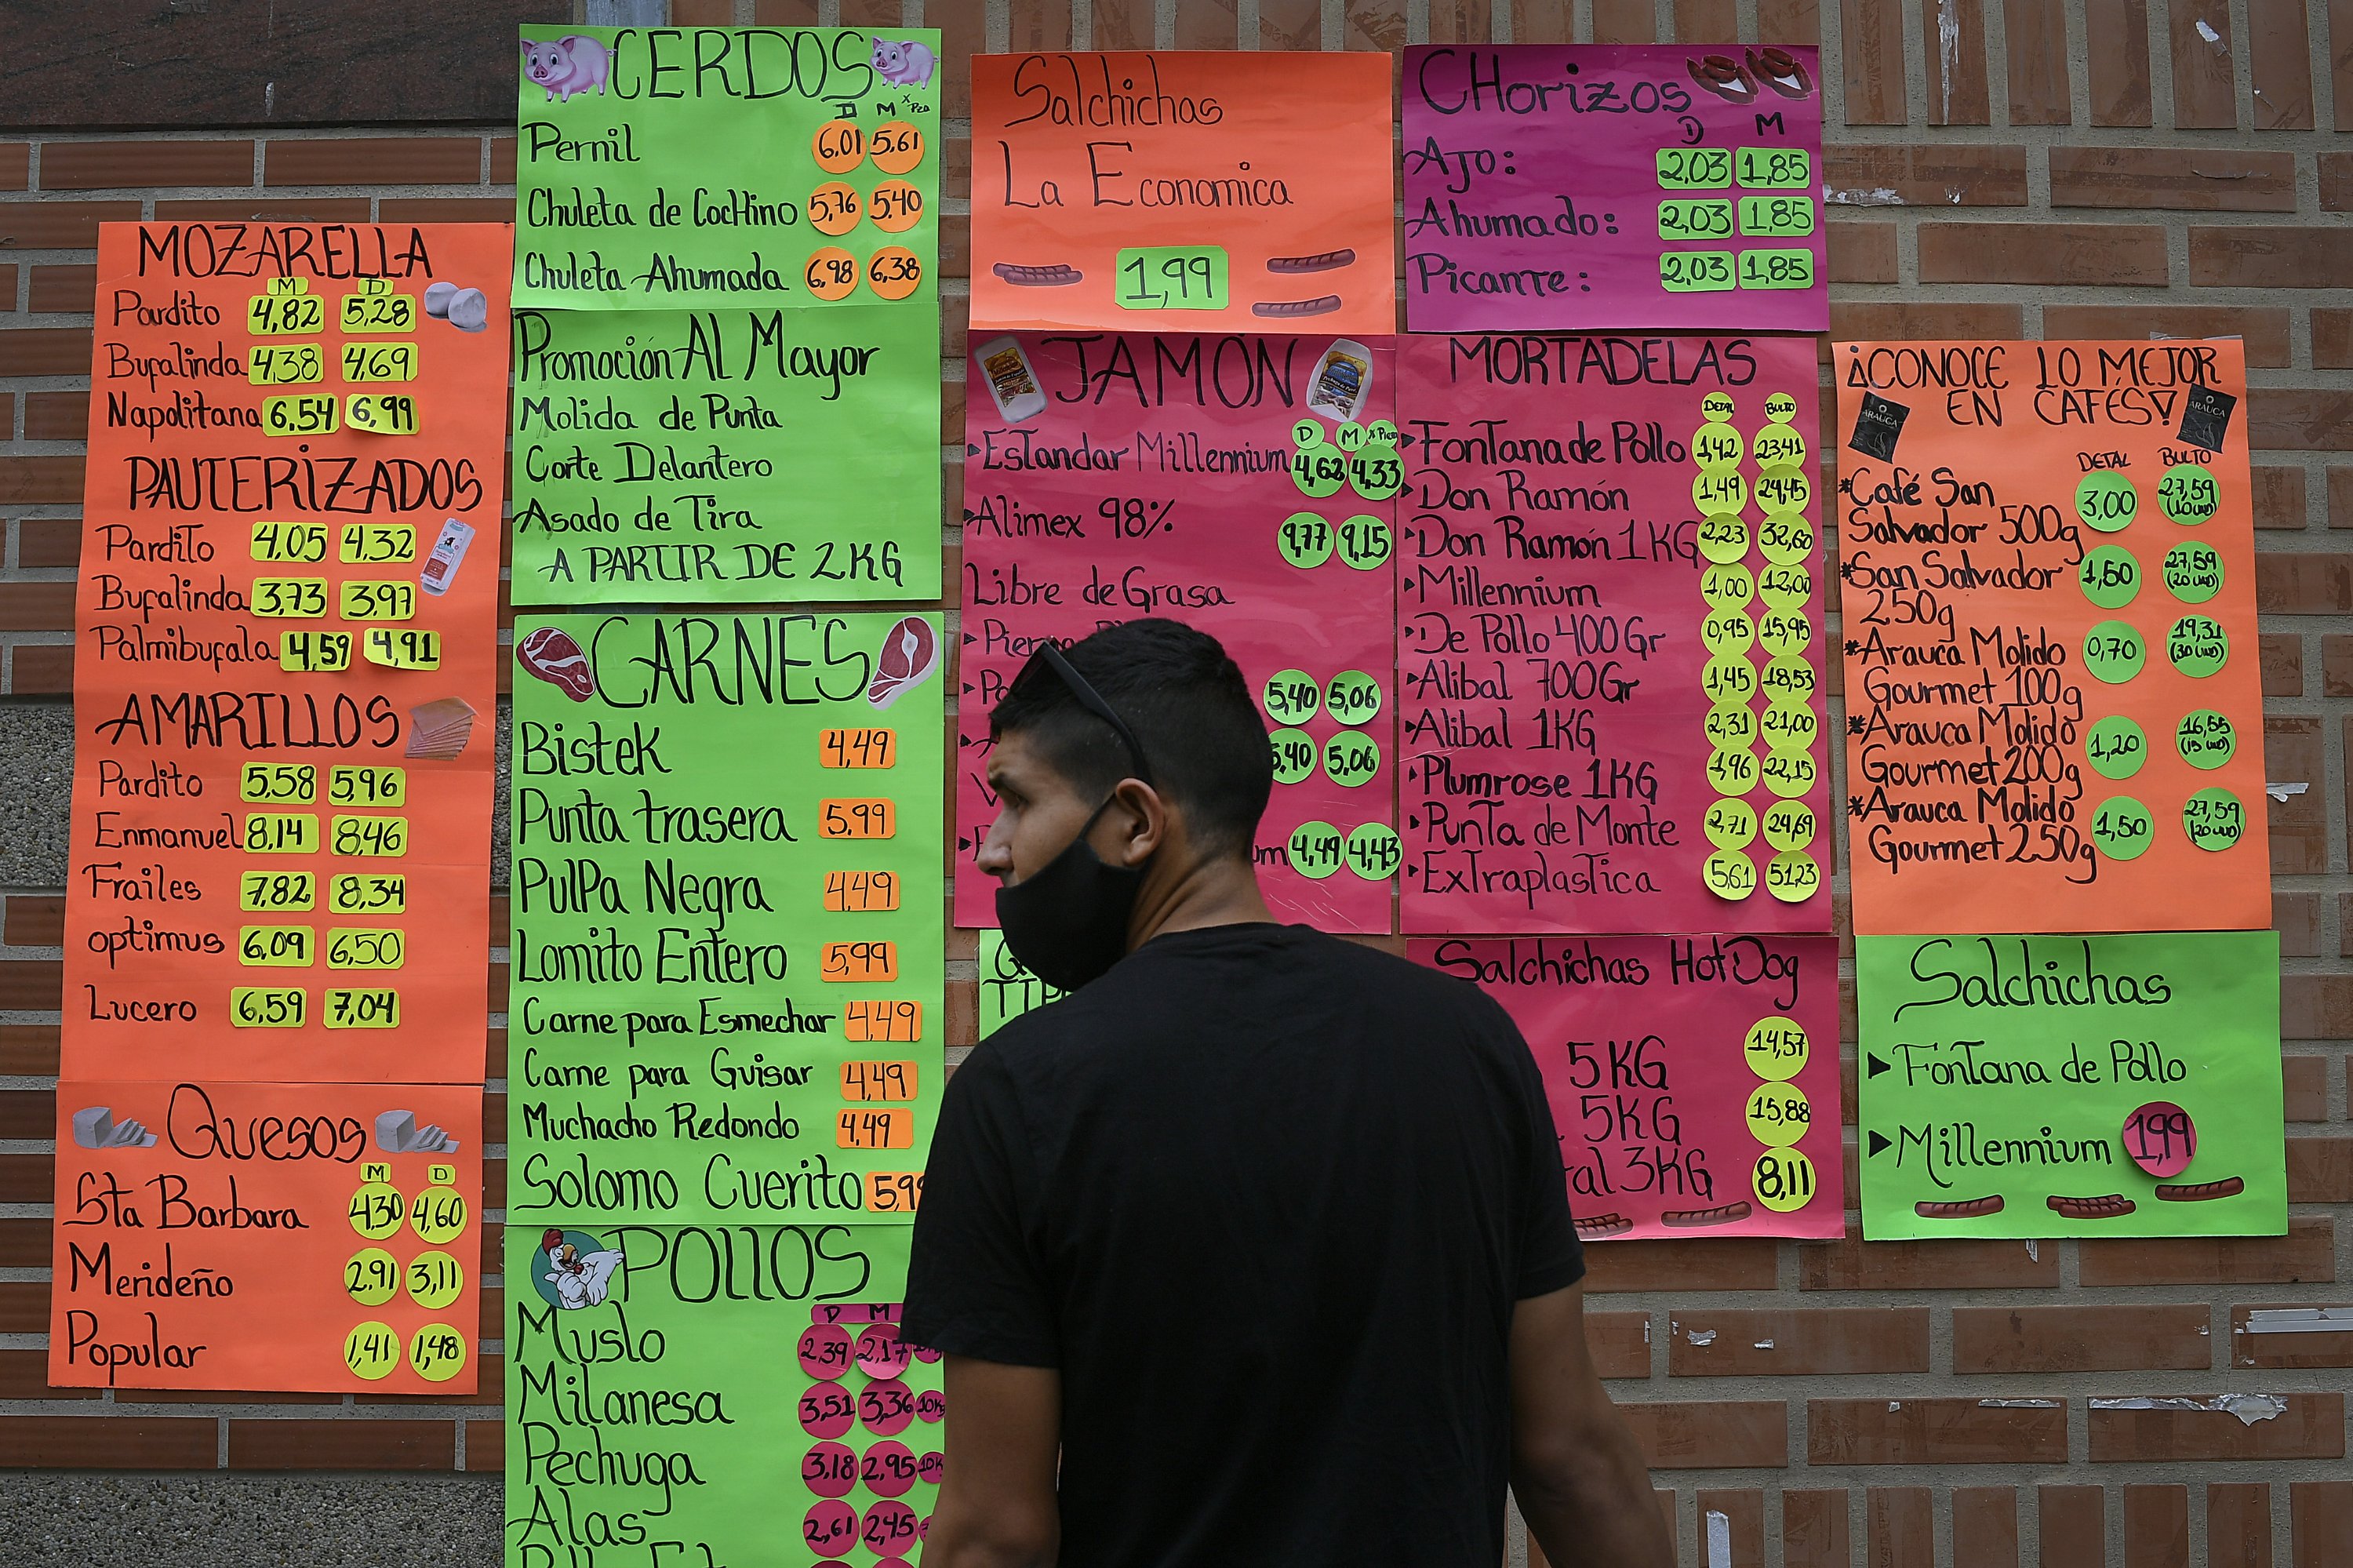 MOZARELLA
M D
Pardito 4,82 5,28
Bufalinda 4,38 4,69
Napolitana 6,54 6,99
PAUTERIZADOS
Pardito 4,05 4,32
Bufalinda 3,73 3,97
Palmibufala 4,59 4,91
AMARILLOS
Pardito 5,58 5,96
Enmanuel 8,14 8,46
Frailes 7,82 8,34
optimus 6,09 6,50
Lucero 6,59 7,04
Quesos
M D
Sta Barbara 4,30 4,60
Merideño 2,91 3,11
Popular 1,41 1,48
CERDOS
D M x Pza
Pernil 6,01 5,61
Chuleta de Cochino 5,76 5,40
Chuleta Ahumada 6,98 6,38
Promoción Al Mayor
Molida de Punta
Corte Delantero
Asado de Tira
A PARTIR DE 2KG
CARNES
Bistek 4,49
Punta trasera 5,99
Pulpa Negra 4,49
Lomito Entero 5,99
Carne para Esmechar 4,49
Carne para Guisar 4,49
Muchacho Redondo 4,49
Solomo Cuerito 5,99
POLLOS
D M
Muslo 2,39 2,17
Milanesa 3,51 3,36 10K
Pechuga 3,18 2,95 10K
Alas 2,61 2,45
Salchichas
La Economica
1,99
JAMÓN
D M x Pieza
Estandar Millennium 4,62 4,33
Alimex 98% 9,77 9,15
Libre de Grasa
5,40 5,06
5,40 5,06
4,49 4,43
CHorizos
D M
Ajo: 2,03 1,85
Ahumado: 2,03 1,85
Picante: 2,03 1,85
MORTADELAS
DETAL BULTO
Fontana de Pollo 1,42 23,41
Don Ramón 1,49 24,45
Don Ramón 1KG 2,23 32,60
Millennium 1,00 12,00
De Pollo 400Gr 0,95 15,95
Alibal 700Gr 1,45 18,53
Alibal 1KG 2,31 21,00
Plumrose 1KG 1,96 22,15
Punta de Monte 2,71 24,69
Extraplastica 5,61 51,23
Salchichas HotDog
5KG 14,57
5KG 15,88
3KG 8,11
¡CONOCE LO MEJOR
EN CAFÉS!
ARAUCA ARAUCA
DETAL BULTO
*Café San
Salvador 500g 3,00 27,59 (10 UND)
*San Salvador
250g 1,50 27,59 (20 UND)
*Arauca Molido
Gourmet 100g 0,70 19,31 (30 UND)
*Arauca Molido
Gourmet 200g 1,20 16,55 (15 UND)
*Arauca Molido
Gourmet 250g 1,50 27,59 (20 UND)
Salchichas
Fontana de Pollo
Millennium 1,99